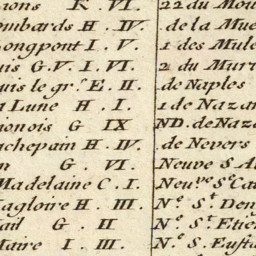 ions K. VI.
ombards H. IV.
ongpont I. V.
uis G.V. I. VI.
uis le gr. E. II
a Lune H. I.
ionois G IX
achepain H. IV.
n G. VI.
Madelaine C. I.
agloire H. III.
ail G. II
Maire I. III.
22 du Mou
de la Mue
1 des Mule
2 du Murr
de Naples
1 de Nazar
ND. de Naza
de Nevers
Neuve S. A
Neuve. Ste Ca
Ne. St. Den
Ne. St. Etie
Ne. S. Eusta